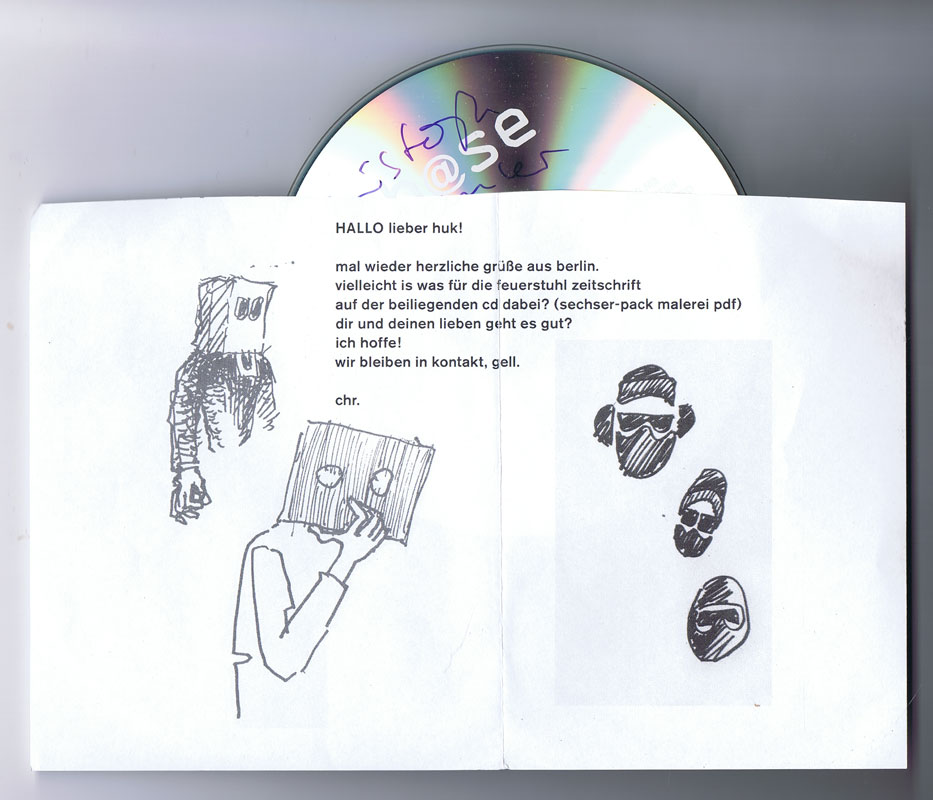 @se
HALLO lieber huk!
mal wieder herzliche grüße aus berlin.
vielleicht is was für die feuerstuhl zeitschrift
auf der beiliegenden cd dabei? (sechser-pack malerei pdf)
dir und deinen lieben geht es gut?
ich hoffe!
wir bleiben in kontakt, gell.
chr.